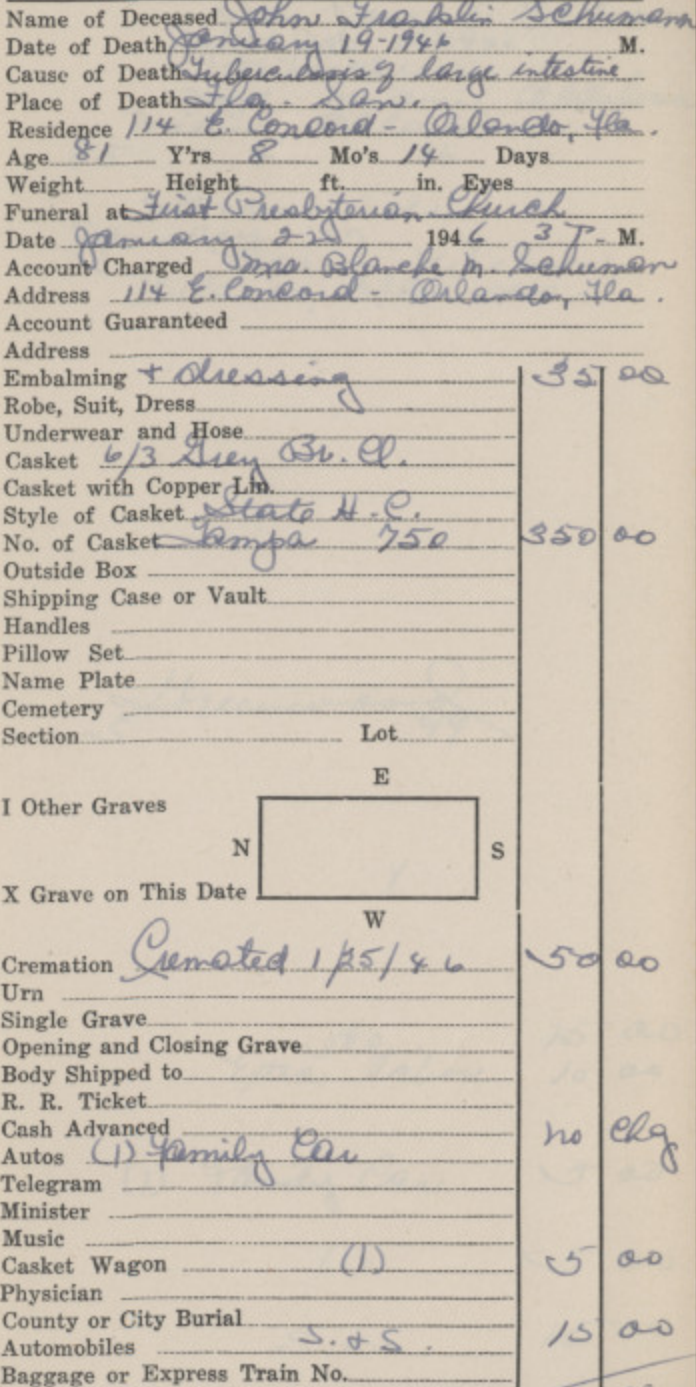 Name of Deceased John Franklin Schumann
Date of Death January 19-1946 M.
Cause of Death Tuberculosis of large intestine
Place of Death Fla. San.
Residence 114 E. Concord - Orlando, Fla.
Age 81 Y'rs 8 Mo's 14 Days
Weight Height ft. in. Eyes
Funeral at First Presbyterian Church
Date January 22 1946 3 P- M.
Account Charged Mrs. Blanche M. Schuman
Address 114 E. Concord - Orlando, Fla.
Account Guaranteed
Address
Embalming + dressing 35 00
Robe, Suit, Dress
Underwear and Hose
Casket 6/3 Grey Br. Cl.
Casket with Copper Lin.
Style of Casket State H.C.
No. of Casket Tampa 750 350 00
Outside Box
Shipping Case or Vault
Handles
Pillow Set
Name Plate
Cemetery
Section Lot
E
I Other Graves
N S
X Grave on This Date
W
Cremation Cremated 1/25/46 50 00
Urn
Single Grave
Opening and Closing Grave
Body Shipped to
R. R. Ticket
Cash Advanced no chg
Autos (1) Family Car
Telegram
Minister
Music
Casket Wagon (1) 5 00
Physician
County or City Burial
Automobiles S. + S. 15 00
Baggage or Express Train No.